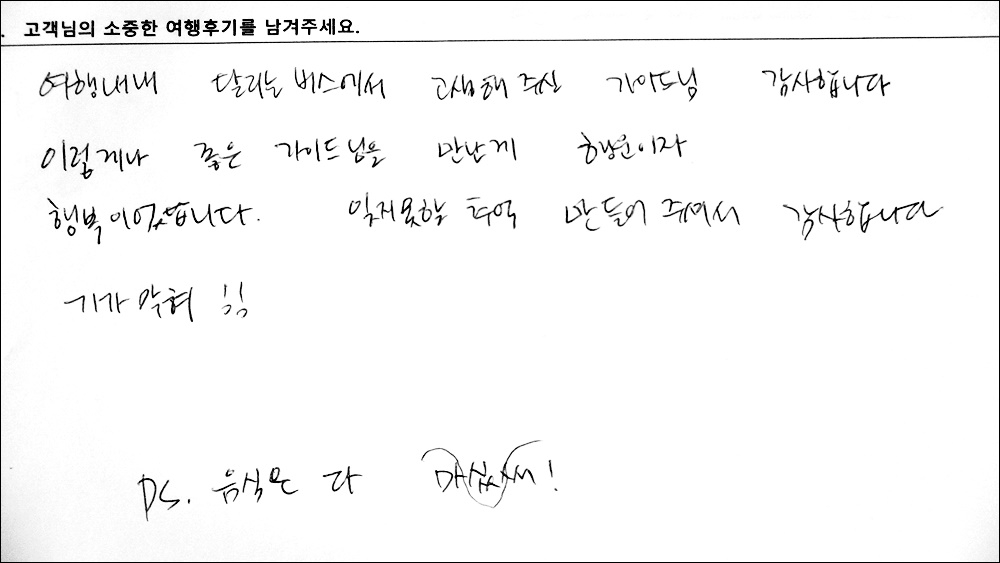 . 고객님의 소중한 여행후기를 남겨주세요.
여행내내 달리는 버스에서 고생해 주신 가이드님 감사합니다
이렇게나 좋은 가이드님을 만난게 행운이자
행복이었습니다. 잊지못할 추억 만들어 주셔서 감사합니다
기가 막혀
PS. 음식은 다